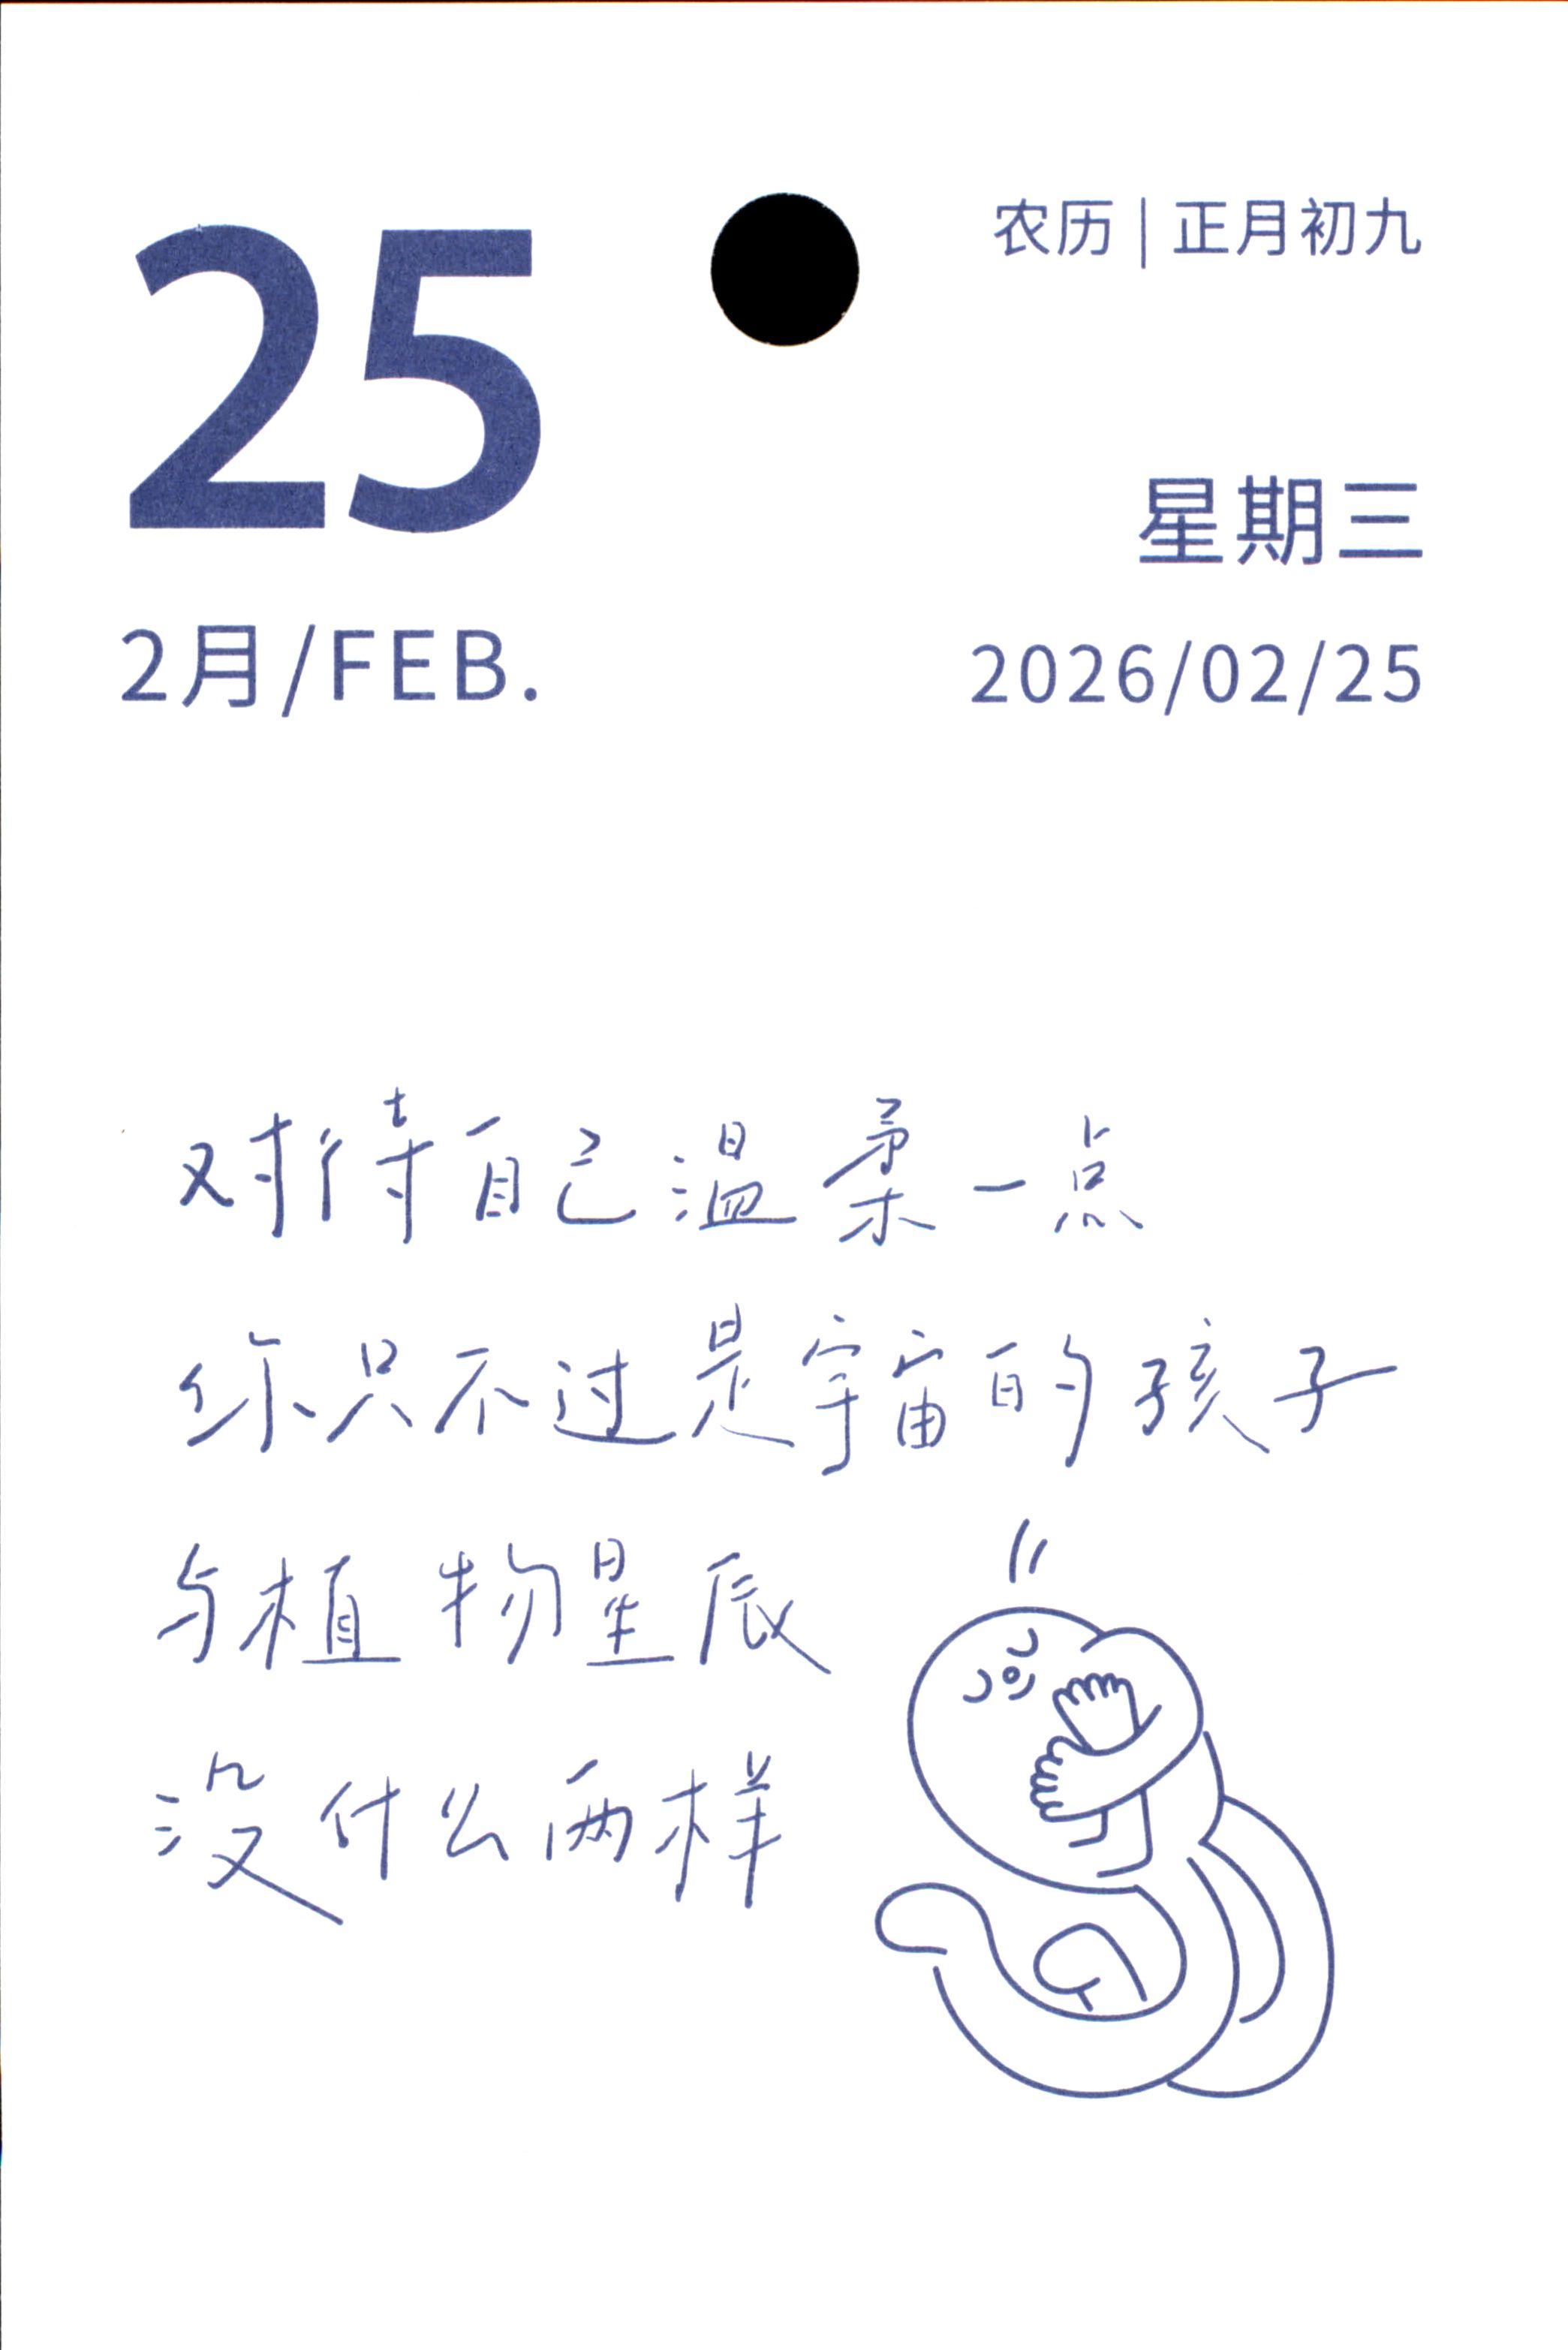 25
农历 | 正月初九
星期三
2月/FEB.
2026/02/25
对待自己温柔一点
你只不过是宇宙的孩子
与植物星辰
没什么两样